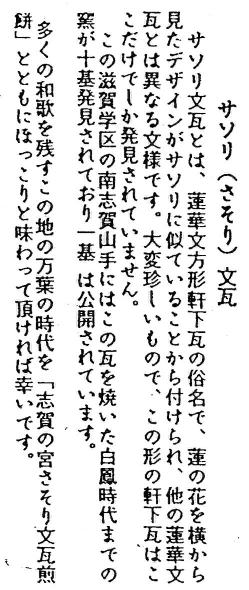 サソリ（さそり）文瓦
サソリ文瓦とは、蓮華文方形軒下瓦の俗名で、蓮の花を横から
見たデザインがサソリに似ていることから付けられ、他の蓮華文
瓦とは異なる文様です。大変珍しいもので、この形の軒下瓦はこ
こだけでしか発見されていません。
この滋賀学区の南志賀山手にはこの瓦を焼いた白鳳時代までの
窯が十基発見されており一基は公開されています。
多くの和歌を残すこの地の万葉の時代を「志賀の宮さそり文瓦煎
餅」とともにほっこりと味わって頂ければ幸いです。